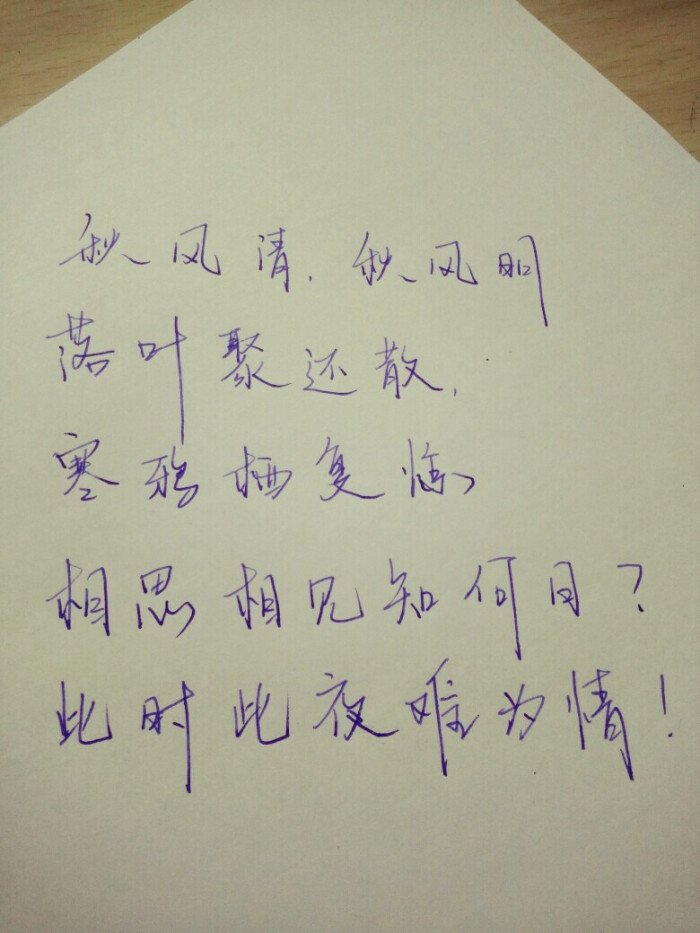 秋风清，秋风明
落叶聚还散，
寒鸦栖复
相思相见知何日？
此时此夜难为情！